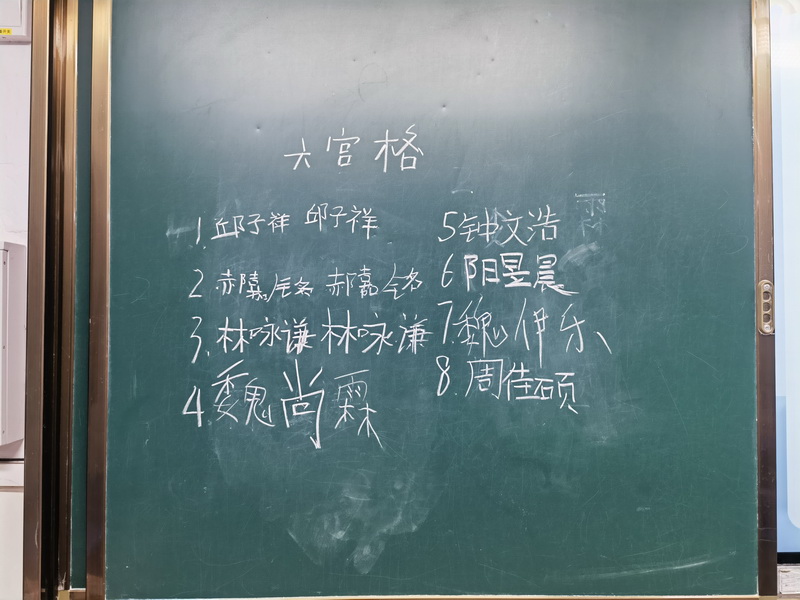 六宫格
1.邱子祥 邱子祥
2 郝嘉铭 郝嘉铭
3.林咏谦 林咏谦
4魏尚霖
5钟文浩
6阳昱晨
7.魏伊乐
8.周佳硕